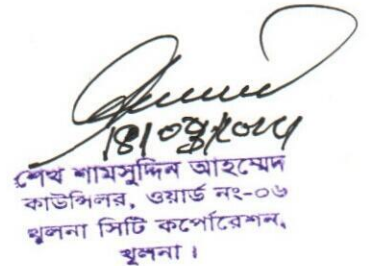 শেখ শামসুদ্দিন আহম্মেদ
কাউন্সিলর, ওয়ার্ড নং-০৬
খুলনা সিটি কর্পোরেশন,
খুলনা।